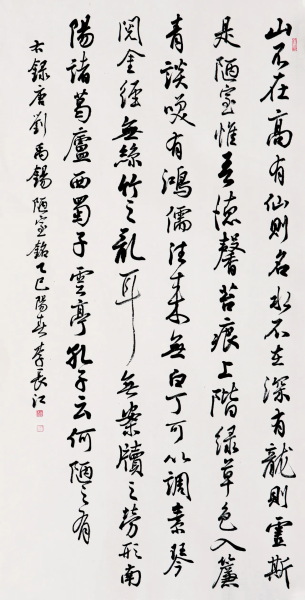 山不在高有仙則名水不在深有龍則靈斯
是陋室惟吾德馨苔痕上階綠草色入簾
青談笑有鴻儒往來無白丁可以調素琴
閱金經無絲竹之亂耳無案牘之勞形南
陽諸葛廬西蜀子雲亭孔子云何陋之有
右錄唐劉禹錫陋室銘乙巳陽春李長江